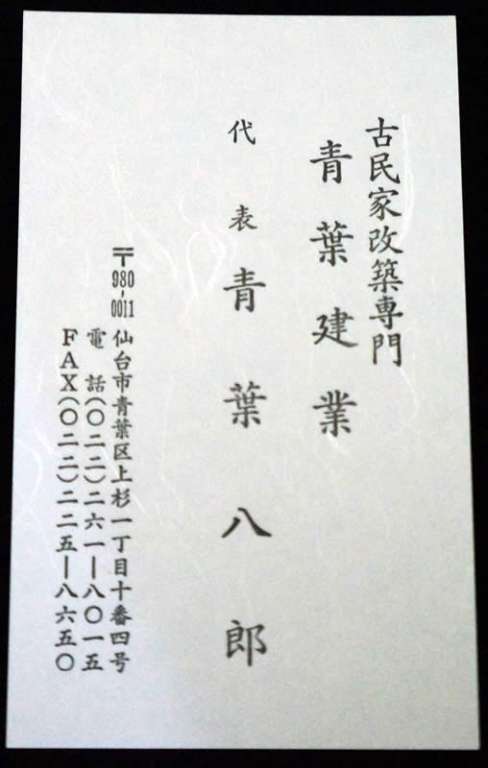 古民家改築専門
青葉建業
代表 青葉八郎
〒980-0011 仙台市青葉区上杉一丁目十番四号
電話(〇二二)二六一―八〇一五
FAX(〇二二)二二五―八六五〇